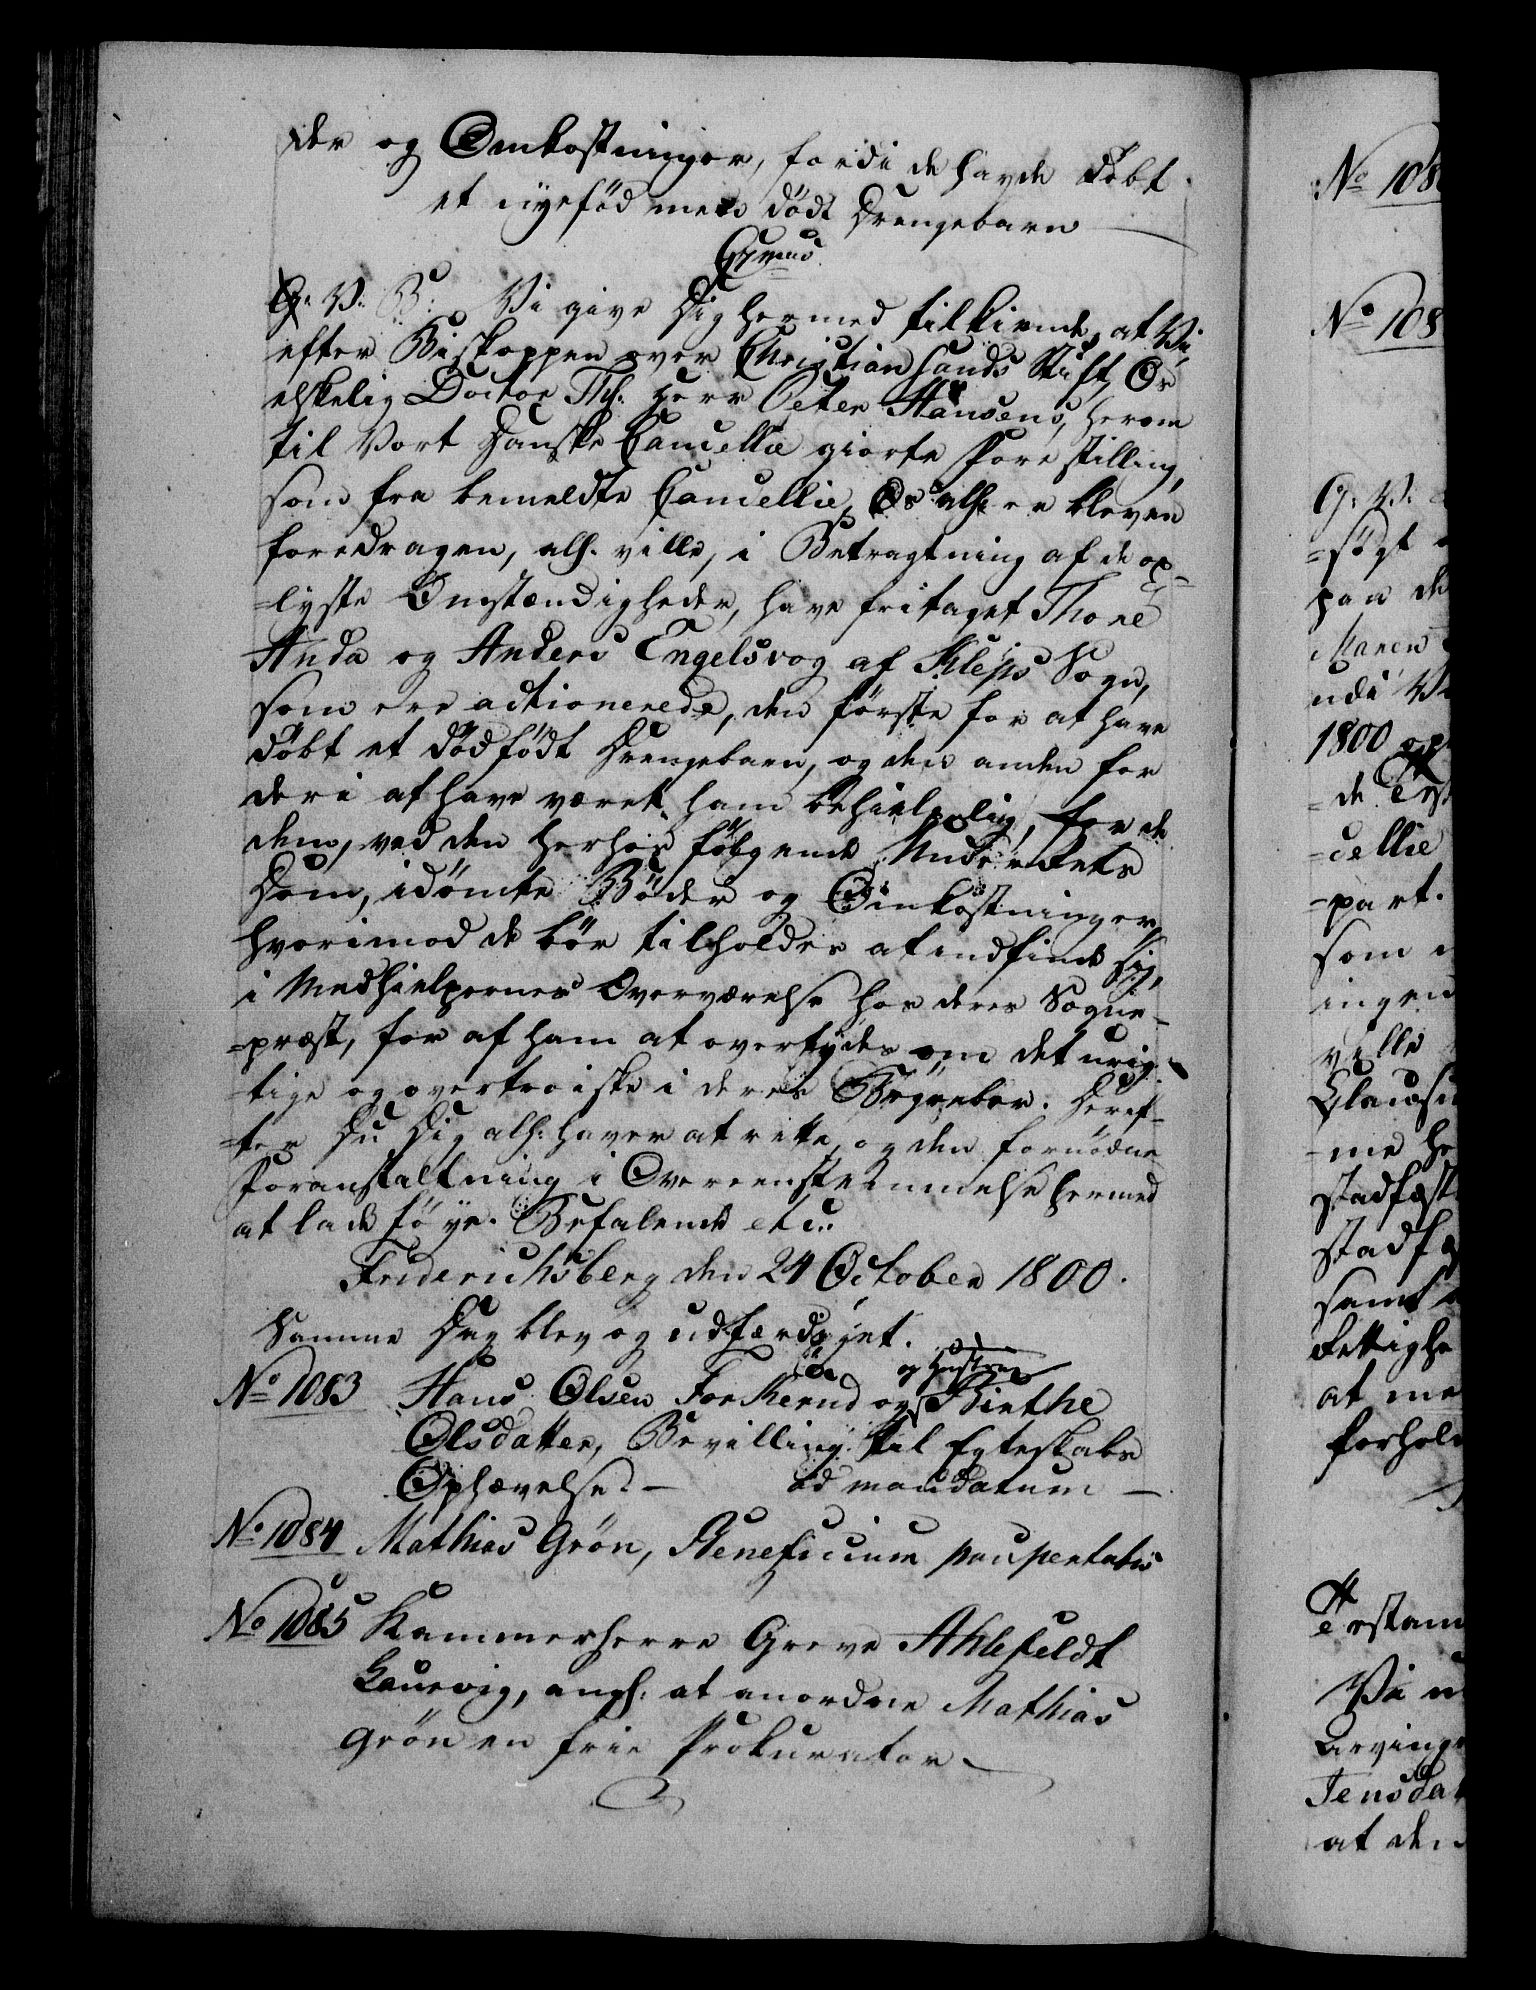 der og Omkostninger, fordi de havde døbt
et nyefød men dødt Drengebarn
G. V. B: Vi give Dig hermed tilkiende, at Vi
efter Biskoppen over Christiansands Stift, Os
elskelig Doctor Th: Herr Peter Hansens, herom
til Vort Danske Cancellie giorte Forestilling,
som fra bemeldte Cancellie, Os alh: er bleven
foredragen, alh. ville, i Betragtning af de op-
=lyste Omstændigheder, have fritaget Thore
Anda og Anders Engelsvog af Kleps Sogn,
som ere actionerede, den første for at have
døbt et dødfødt Drengebarn, og den anden for
deri at have været ham behielpelig, for de
dem, ved den herhos følgende Underrets
Dom, idømte Bøder og Omkostninger,
hvorimod de bør tilholdes at indfinde sig,
i Medhielpernes Overværelse hos deres Sogne-
=præst, for af ham at overtydes om det urig-
-tige og overtroiske i deres Begreber. Heref-
=ter Du Dig alh: haver at rette, og den fornødne
Foranstaltning i Overeensstemmelse hermed
at lade føye. Befalende etc:
Friderichsberg den 24 October 1800.
Samme Dag blev og udfærdiget.
No 1083 Hans Olsen Forkerud og Hustrue Birthe
Olsdatter, Bevilling til Egteskabs
Ophævelse. — ad mandatum —
No 1084 Mathias Grön, Beneficium paupertatis
No 1085 Kammerherre Greve Ahlefeldt
Laurvig, angl. at anordne Mathias
Grön en frie Prokurator
No 108
No 108
G. V.
=søgt
paa de
Maren
udi
1800
=de
-cellie
=part.
som
ingen
ville
-me
stadfæst
stadf
samt
Rettighe
at me
forhol
Testam
Vi
Arving
Jensdat
at den